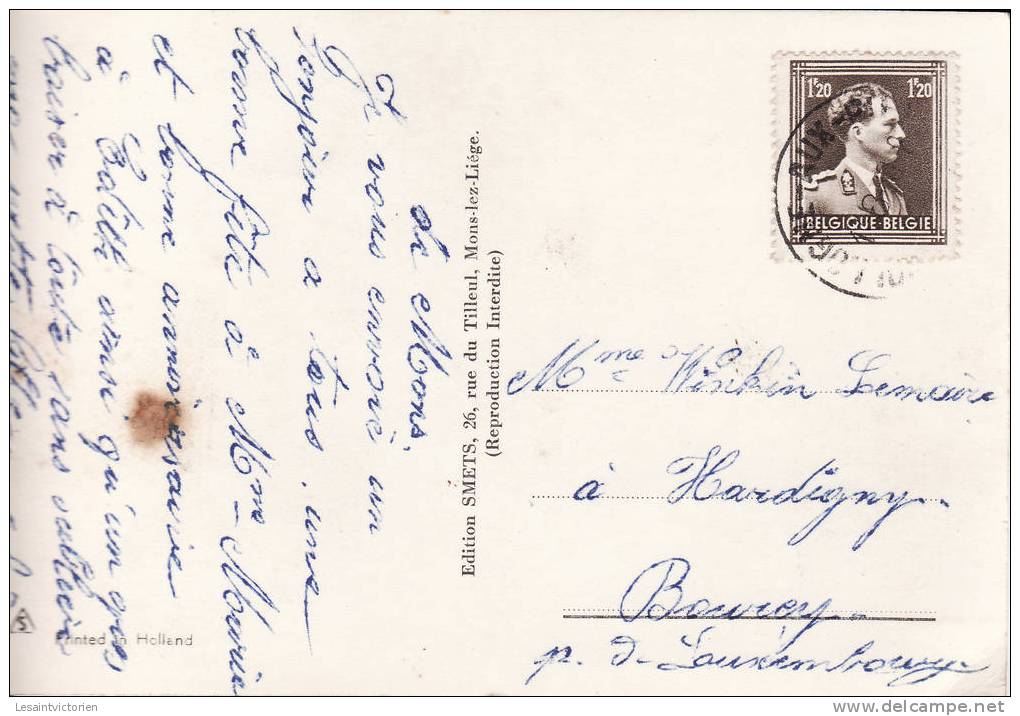 de Mons.
Je vous envoie un
bonjour a tous, une
bonne fête à Mme Maurice
et bonne anniversaire
à Edith ainsi qu'un gros
baiser à toute sans oublier
Edition SMETS, 26, rue du Tilleul, Mons-lez-Liége.
(Reproduction Interdite)
1F20 1F20
BELGIQUE-BELGIE
Mme Winkin Lemaire
à Hardigny.
Bourcy
p. d. Luxembourg
Printed in Holland
S
Lesaintvictorien
delcampe.net